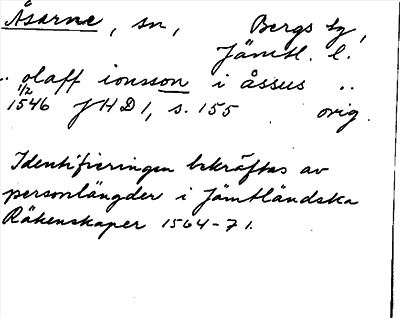 Åsarne, sn, Bergs tg,
Jämtl. l.
.. olaff ionsson i åssus ..
1/2 1546 JHD 1, s. 155 orig.
Identifieringen bekräftas av
personlängder i Jämtländska
Räkenskaper 1564-71.